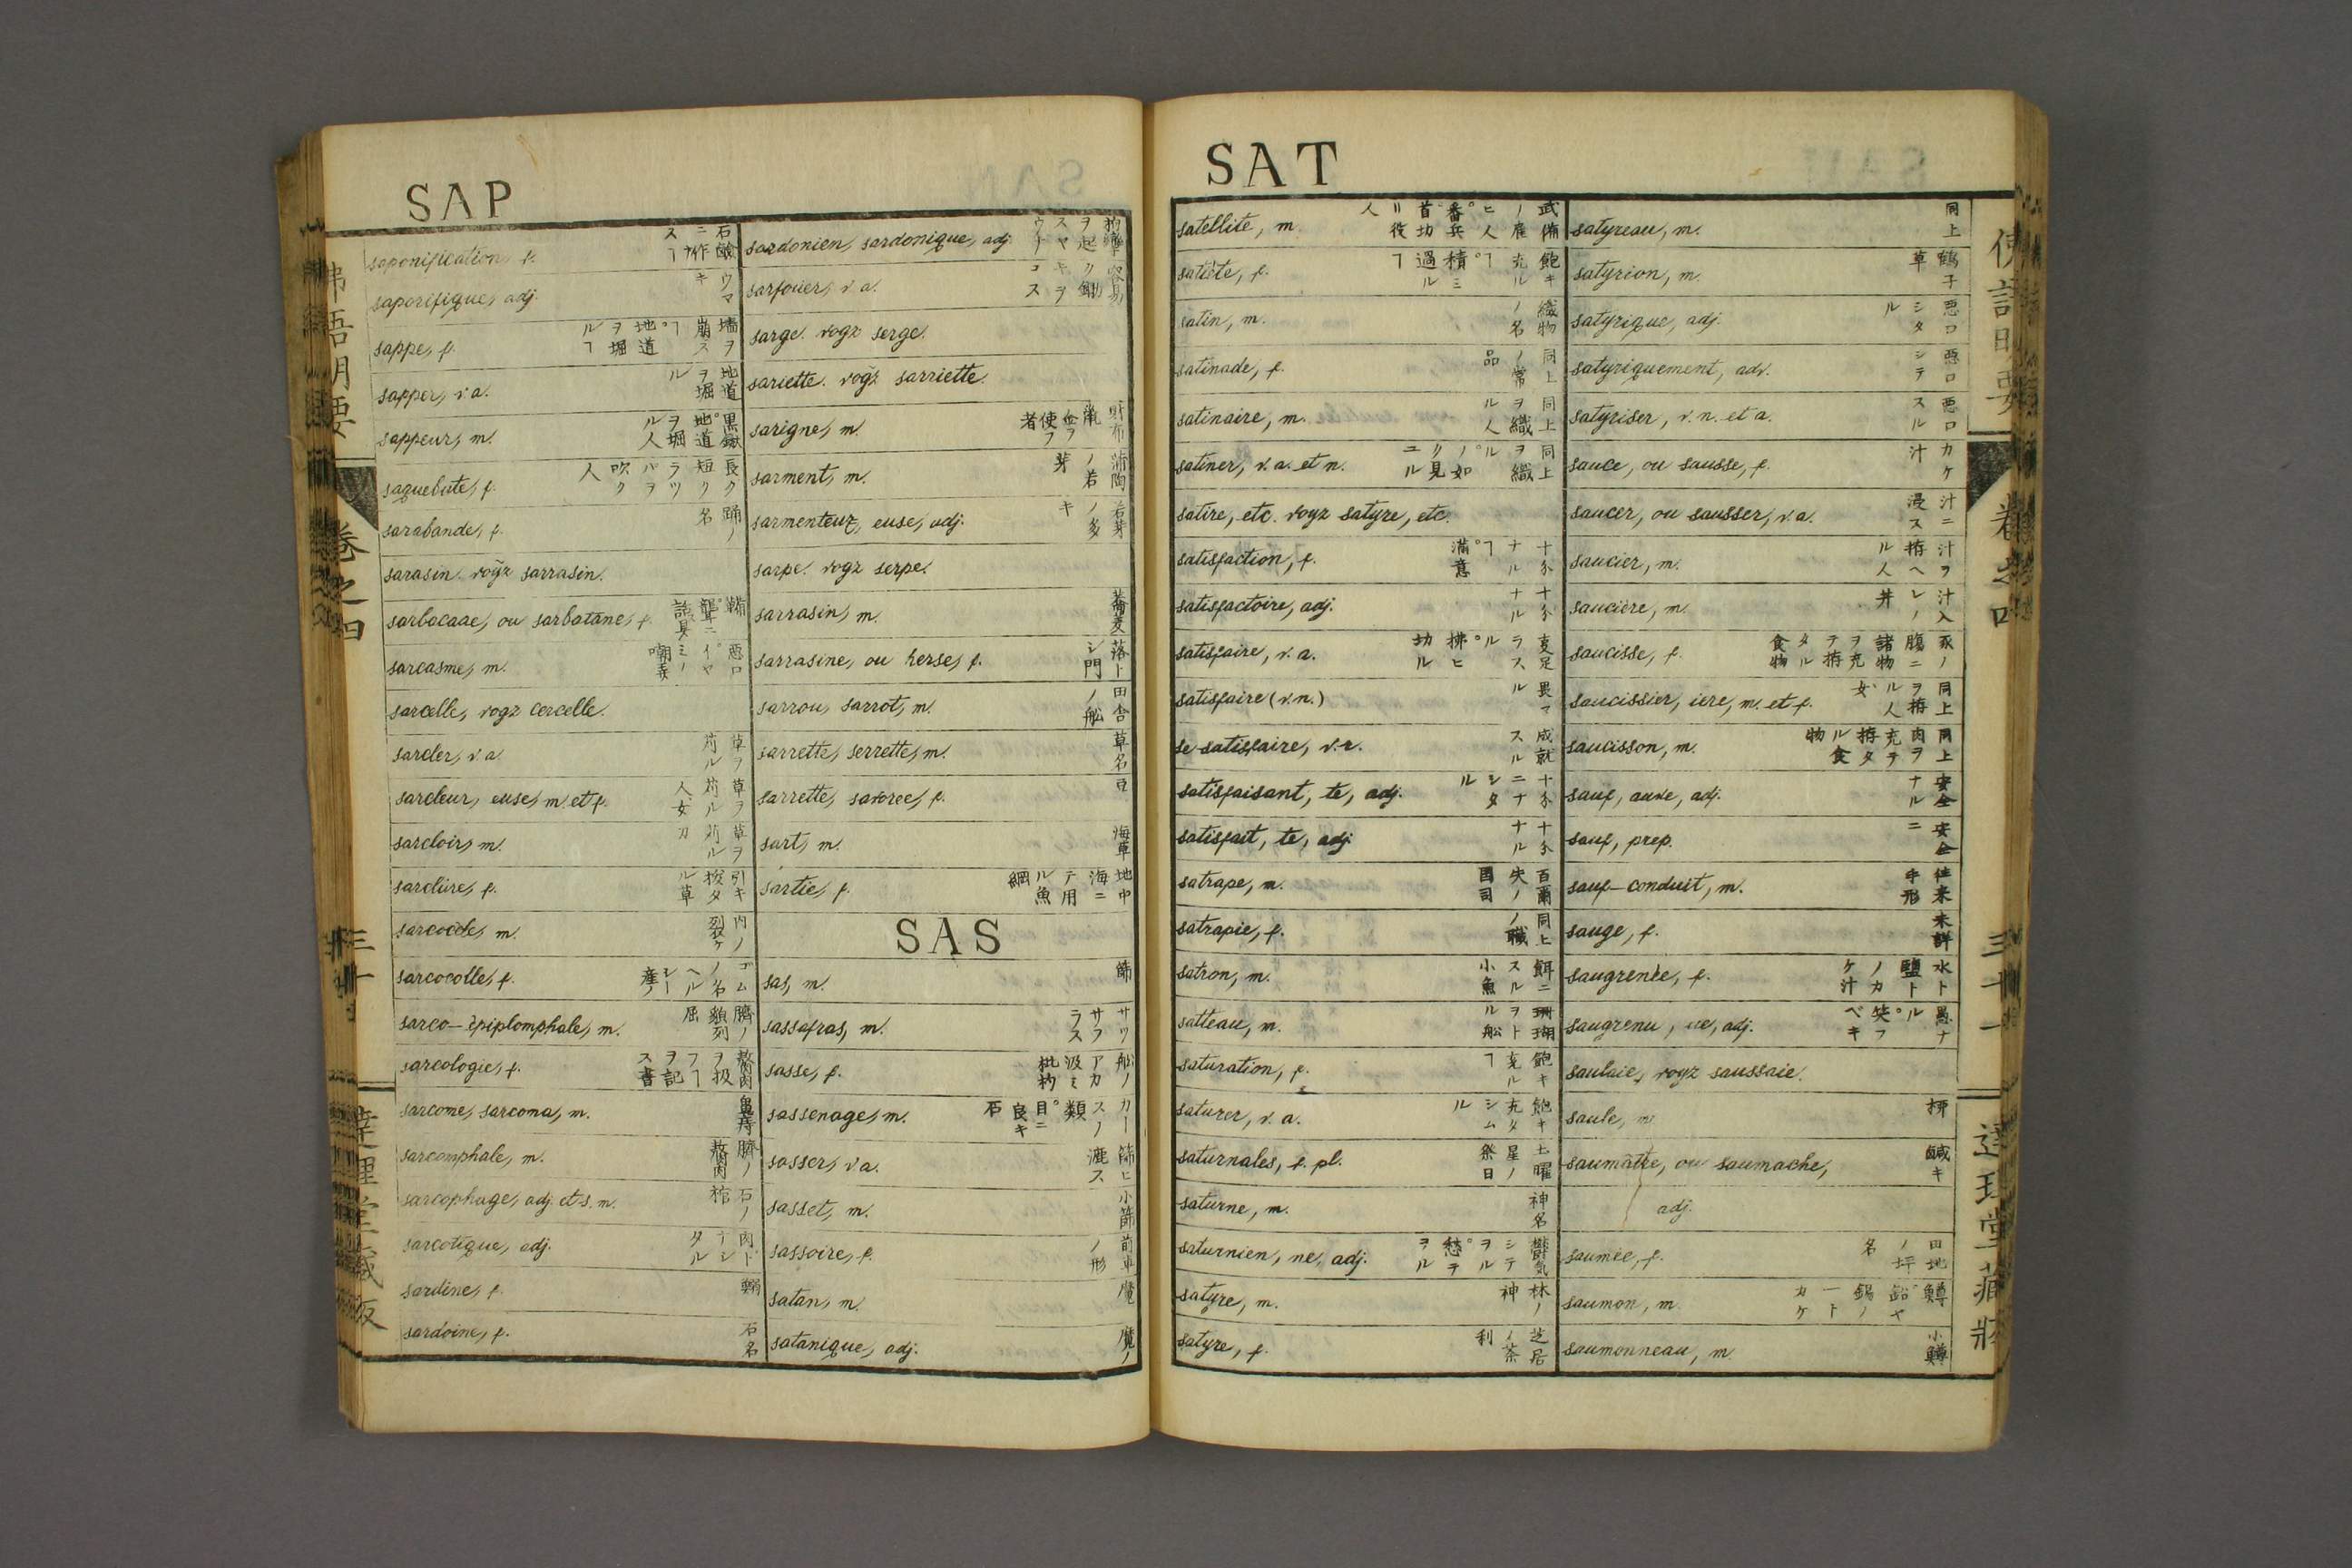 SAP
saponification, f. 石鹸ニ作ス
saporifique, adj. ウマキ
sappe, f. 墻ヲ崩スヿ゜地道ヲ堀ルヿ
sapper, v.a. 地道ヲ堀ル
sappeur, m. 地道ヲ堀ル人
saquebute, f. 長ク短クラツパヲ吹ク人
sarabande, f. 踊ノ名
sarasin. voyz sarrasin.
sarbacane, ou sarbatane, f.
sarcasme, m. 悪口イヤミノ嘲弄
sarcelle, voyz cercelle.
sarcler, v.a. 草ヲ苅ル
sarcleur, euse, m. et f. 草ヲ苅ル人女
sarcloir, m. 草ヲ苅ル刀
sarclure, f. 引キ捘タル草
sarcocèle, m. 肉ノ裂ケ
sarcocolle, f.
sarco-èpiplomphale, m.
sarcologie, f.
sarcome, sarcoma, m.
sarcomphale, m. 臍ノ
sarcophage, adj. et s. m. 石ノ棺
sarcotique, adj.
sardine, f. 鰯
sardoine, f. 石名
sardonien, sardonique, adj.
sarfouer, v.a.
sarge. voyz serge.
sariette. voyz sarriette.
sarigne, m.
sarment, m. 蒲陶ノ若芽
sarmenteux, euse, adj. 若芽ノ多キ
sarpe. voyz serpe.
sarrasin, m. 蕎麦
sarrasine, ou herse, f. 落トシ門
sarrou, sarrot, m. 田舎ノ舩
sarrette, serrette, m. 草名
sarrette, savoree, f. 豆
sart, m. 海草
sartie, f. 地中海ニテ用ル魚網
SAS
sas, m. 篩
sassafras, m. サツサフラス
sasse, f. 舩ノアカ汲ミ枇杓
sassenage, m.
sasser, v.a. 篩ヒ漉ス
sasset, m. 小篩
sassoire, f. 前車ノ形
satan, m. 魔
satanique, adj. 魔ノ
SAT
satellite, m. 武備ノ雇ヒ人゜番兵
satièté, f. 飽キ充ルヿ゜積ミ過ルヿ
satin, m. 織物ノ名
satinade, f. 同上ノ常品
satinaire, m. 同上ヲ織ル人
satiner, v.a. et n. 同上ヲ織ル゜
satire, etc. voyz satyre, etc.
satisfaction, f. 十分ナルヿ゜満意
satisfactoire, adj. 十分ナル
satisfaire, v.a.
satisfaire (v.n.)
se satisfaire, v.r. 成就スル
satisfaisant, te, adj. 十分ニナシタル
satisfait, te, adj. 十分ナル
satrape, m. 百爾失ノ国司
satrapie, f. 同上ノ職
satron, m. 餌ニスル小魚
satteau, m. 珊瑚ヲトル舩
saturation, f. 飽キ充ルヿ
saturer, v.a. 飽キ充タシムル
saturnales, f. pl. 土曜星ノ祭日
saturne, m. 神名
saturnien, ne, adj.
satyre, m. 林ノ神
satyre, f. 芝居ノ茶利
satyreau, m. 同上
satyrion, m. 鶴子草
satyrique, adj. 悪口シタル
satyriquement, adv. 悪口シテ
satyriser, v.n. et a. 悪口スル
sauce, ou sausse, f. カケ汁
saucer, ou sausser, v.a. 汁ニ浸ス
saucier, m. 汁ヲ拵ヘル人
saucière, m. 汁入レノ丼
saucisse, f. 豕ノ腹ニ諸物ヲ充テ拵タル食物
saucissier, ière, m. et f. 同上ヲ拵ル人゛女
saucisson, m. 同上肉ヲ充テ拵タル食物
sauf, auve, adj. 安全ナル
sauf, prep. 安全ニ
sauf-conduit, m. 往来手形
sauge, f. 未詳
saugrenèe, f. 水ト鹽トノカケ汁
saugrenu, ue, adj. 愚ナル゜笑フベキ
saulaie, voyz saussaie.
saule, m. 柳
saumâtre, ou saumache, adj. 鹹キ
saumèe, f. 田地ノ坪名
saumon, m.
saumonneau, m. 小鱒
卷之四
三十一
達理堂藏版